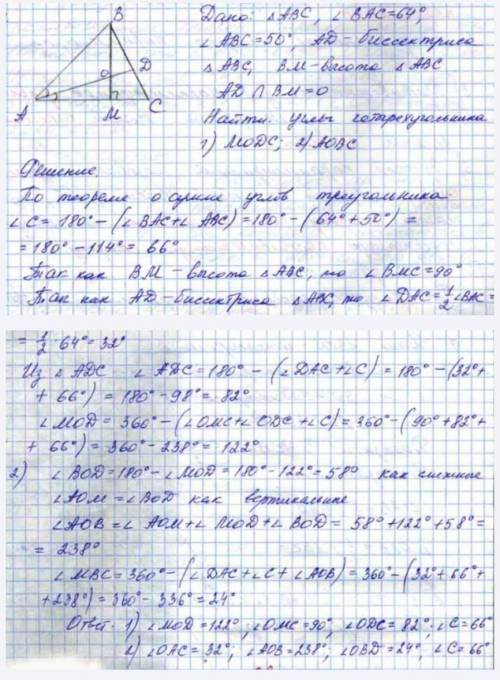 B
O
D
A
M
C
Дано: △ABC, ∠BAC=64°,
∠ABC=50°, AD-биссектриса
△ABC, BM-высота △ABC
AD ∩ BM=O
Найти: углы четырехугольника
1) MODC; 2) AOBC
Решение
По теореме о сумме углов треугольника
∠C= 180°-(∠BAC+∠ABC)=180°-(64°+50°)=
=180°-114°= 66°
Так как BM-высота △ABC, то ∠BMC=90°
Так как AD-биссектриса △ABC, то ∠DAC=1/2∠BAC=
= 1/2·64°=32°
Из △ADC ∠ADC=180°-(∠DAC+∠C)=180°-(32°+
+ 66°) = 180°-98°= 82°
∠MOD= 360°-(∠OMC+∠ODC+∠C)=360°-(90°+82°+
+ 66°)= 360°-238°= 122°
2) ∠BOD=180°-∠MOD=180°-122°=58° как смежные
∠AOM=∠BOD как вертикальные
∠AOB=∠AOM+∠MOD+∠BOD= 58°+122°+58°=
= 238°
∠MBC=360°-(∠DAC+∠C+∠AOB)=360°-(32°+66°+
+238°)=360°-336°=24°
Ответ. 1) ∠MOD=122°; ∠OMC=90°, ∠ODC= 82°; ∠C=66°
2) ∠OAC=32°; ∠AOB=238°; ∠OBD=24°, ∠C=66°